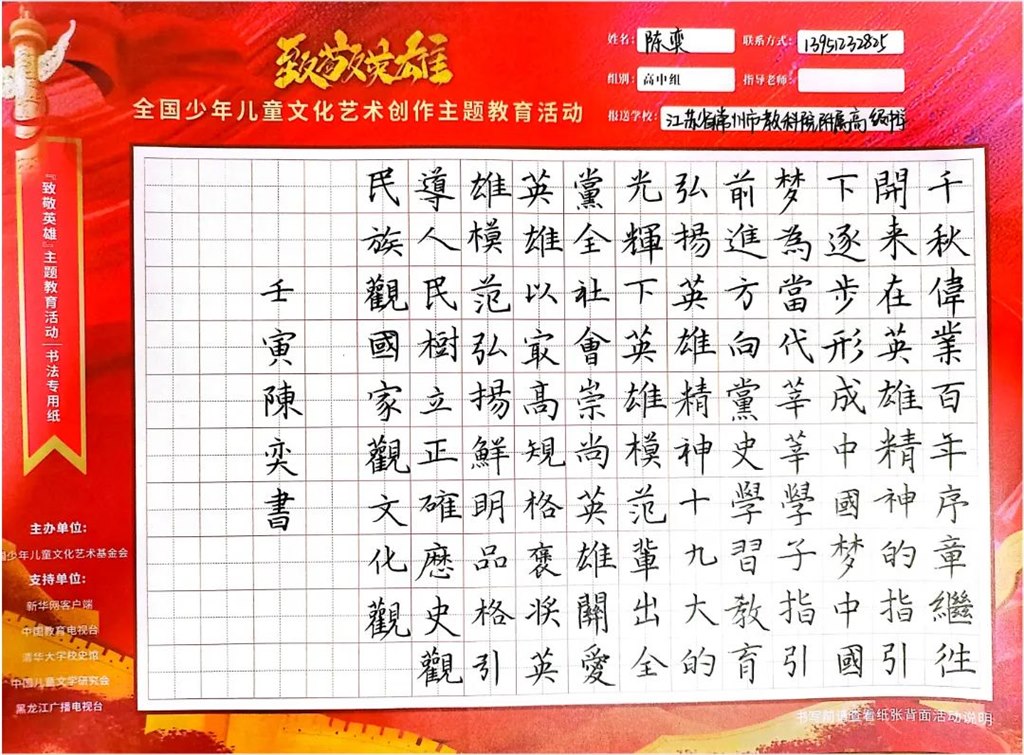 致敬英雄
全国少年儿童文化艺术创作主题教育活动
姓名: 陈奕 联系方式: 13951232825
组别: 高中组 指导老师:
报送学校: 江苏省常州市教科院附属高级中学
千秋偉業百年序章繼往
開来在英雄精神的指引
下逐步形成中國梦中國
梦為當代莘莘學子指引
前進方向黨史學習教育
弘揚英雄精神十九大的
光輝下英雄模范輩出全
黨全社會崇尚英雄關愛
英雄以㝡高規格褒奖英
雄模范弘揚鮮明品格引
導人民樹立正確歷史觀
民族觀國家觀文化觀
壬寅陳奕書
『致敬英雄』主题教育活动|书法专用纸
主办单位:
国少年儿童文化艺术基金会
支持单位:
新华网客户端
中国教育电视台
清华大学校史馆
中国儿童文学研究会
黑龙江广播电视台
书写前请查看纸张背面活动说明